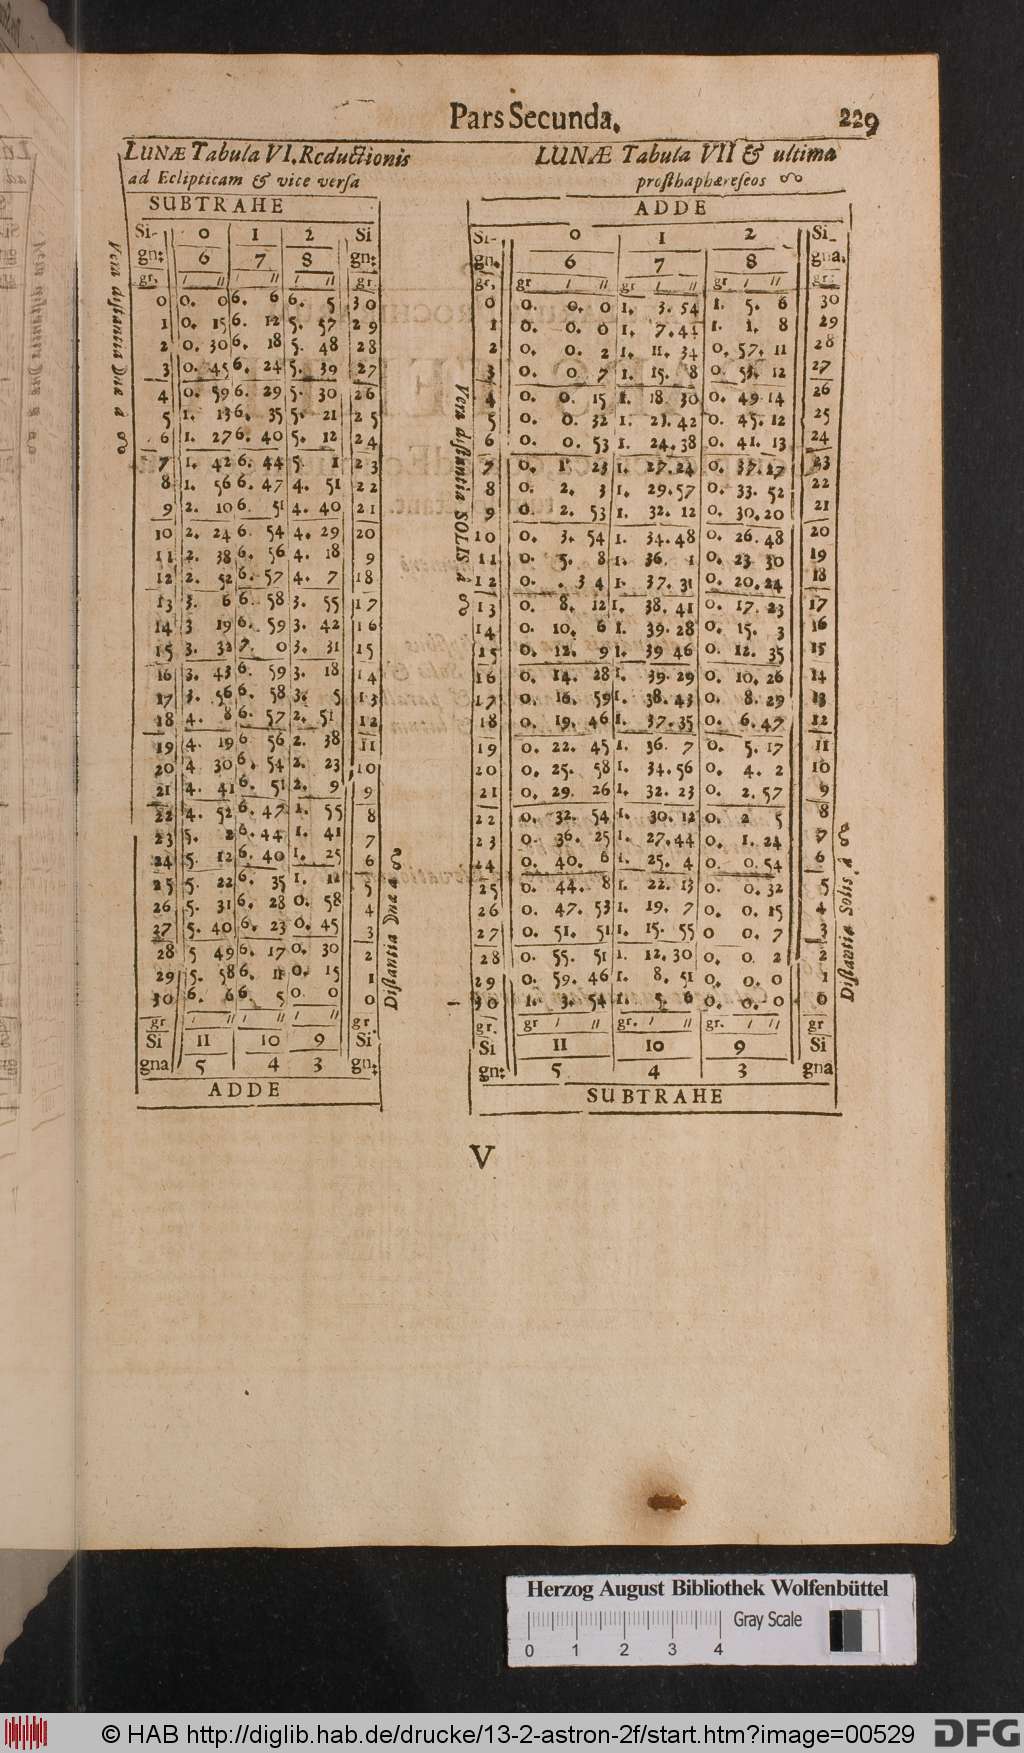 Pars Secunda. 229
LUNÆ Tabula VI. Reductionis
ad Eclipticam & vice versa
SUBTRAHE
Si- 0 1 2 Si
gn: 6 7 8 gn:
gr. ′ ″ ′ ″ ′ ″ gr.
0 0. 0 6. 6 6. 5 30
1 0. 15 6. 12 5. 57 29
2 0. 30 6. 18 5. 48 28
3 0. 45 6. 24 5. 39 27
4 0. 59 6. 29 5. 30 26
5 1. 13 6. 35 5. 21 25
6 1. 27 6. 40 5. 12 24
7 1. 42 6. 44 5. 1 23
8 1. 56 6. 47 4. 51 22
9 2. 10 6. 51 4. 40 21
10 2. 24 6. 54 4. 29 20
11 2. 38 6. 56 4. 18 9
12 2. 52 6. 57 4. 7 18
13 3. 6 6. 58 3. 55 17
14 3 19 6. 59 3. 42 16
15 3. 32 7. 0 3. 31 15
16 3. 43 6. 59 3. 18 14
17 3. 56 6. 58 3. 5 13
18 4. 8 6. 57 2. 51 12
19 4. 19 6 56 2. 38 11
20 4 30 6. 54 2. 23 10
21 4. 41 6. 51 2. 9 9
22 4. 52 6. 47 1. 55 8
23 5. 2 6. 44 1. 41 7
24 5. 12 6. 40 1. 25 6
25 5. 22 6. 35 1. 12 5
26 5. 31 6. 28 0. 58 4
27 5. 40 6. 23 0. 45 3
28 5 49 6. 17 0. 30 2
29 5. 58 6. 11 0. 15 1
30 6. 6 6. 5 0. 0 0
gr ′ ″ ′ ″ ′ ″ gr
Si 11 10 9 Si
gna 5 4 3 gn:
ADDE
Vera distantia Dnæ à ☊
Distantia Dnæ à ☊
LUNÆ Tabula VII & ultima
prosthaphæreseos ☊
ADDE
Si- 0 1 2 Si_
gn. 6 7 8 gna.
gr. gr ′ ″ gr ′ ″ gr ′ ″ gr:
0 0. 0. 0 1. 3. 54 1. 5. 6 30
1 0. 0. 0 1. 7. 41 1. 1. 8 29
2 0. 0. 2 1. 11. 34 0. 57. 11 28
3 0. 0 7 1. 15. 8 0. 53. 12 27
4 0. 0. 15 1. 18. 30 0. 49 14 26
5 0. 0. 32 1. 21. 42 0. 45. 12 25
6 0. 0. 53 1. 24. 38 0. 41. 13 24
7 0. 1. 23 1. 27. 24 0. 37. 27 23
8 0. 2. 3 1. 29. 57 0. 33. 52 22
9 0. 2. 53 1. 32. 12 0. 30. 20 21
10 0. 3. 54 1. 34. 48 0. 26. 48 20
11 0. 5. 8 1. 36. 1 0. 23 30 19
12 0. . 34 1. 37. 31 0. 20. 24 18
13 0. 8. 12 1. 38. 41 0. 17. 23 17
14 0. 10. 6 1. 39. 28 0. 15. 3 16
15 0. 12. 9 1. 39 46 0. 12. 35 15
16 0. 14. 28 1. 39. 29 0. 10. 26 14
17 0. 16. 59 1. 38. 43 0. 8. 29 13
18 0. 19. 46 1. 37. 35 0. 6. 47 12
19 0. 22. 45 1. 36. 7 0. 5. 17 11
20 0. 25. 58 1. 34. 56 0. 4. 2 10
21 0. 29. 26 1. 32. 23 0. 2. 57 9
22 0. 32. 54 1. 30. 12 0. 2 5 8
23 0. 36. 25 1. 27. 44 0. 1. 24 7
24 0. 40. 6 1. 25. 4 0. 0. 54 6
25 0. 44. 8 1. 22. 13 0. 0. 32 5
26 0. 47. 53 1. 19. 7 0. 0. 15 4
27 0. 51. 51 1. 15. 55 0 0. 7 3
28 0. 55. 51 1. 12. 30 0. 0. 2 2
29 0. 59. 46 1. 8. 51 0. 0. 0 1
30 1. 3. 54 1. 5. 6 0. 0. 0 0
gr. gr ′ ″ gr. ′ ″ gr. ′ ″ gr
Si 11 10 9 Si
gn: 5 4 3 gna
SUBTRAHE
Vera distantia SOLIS à ☊
Distantia Solis à ☊
V
Herzog August Bibliothek Wolfenbüttel
Gray Scale
0 1 2 3 4
© HAB http://diglib.hab.de/drucke/13-2-astron-2f/start.htm?image=00529
DFG